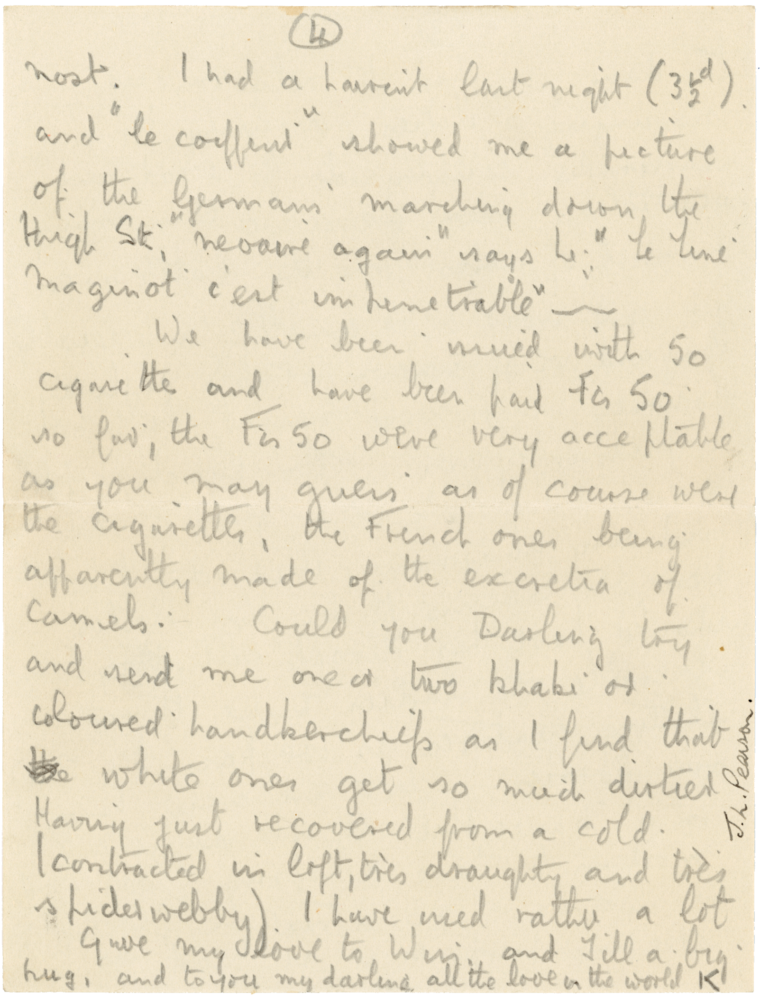 4
most. I had a haircut last night (3½d).
and "le coiffeur" showed me a picture
of the Germans marching down the
High St, "nevaire again" says he: "le line
maginot c'est impenetrable"
We have been issued with 50
cigarettes and have been paid Frs 50
so far, the Frs 50 were very acceptable
as you may guess as of course were
the cigarettes, the French ones being
apparently made of the excretia of
camels. Could you Darling try
and send me one or two khaki or
coloured handkerchiefs as I find that
the white ones get so much dirtier
Having just recovered from a cold.
(contracted in loft, très draughty and très
spiderwebby) I have used rather a lot
Give my love to Win. and Jill a big
hug, and to you my darling all the love in the world K
J.L. Pearson.